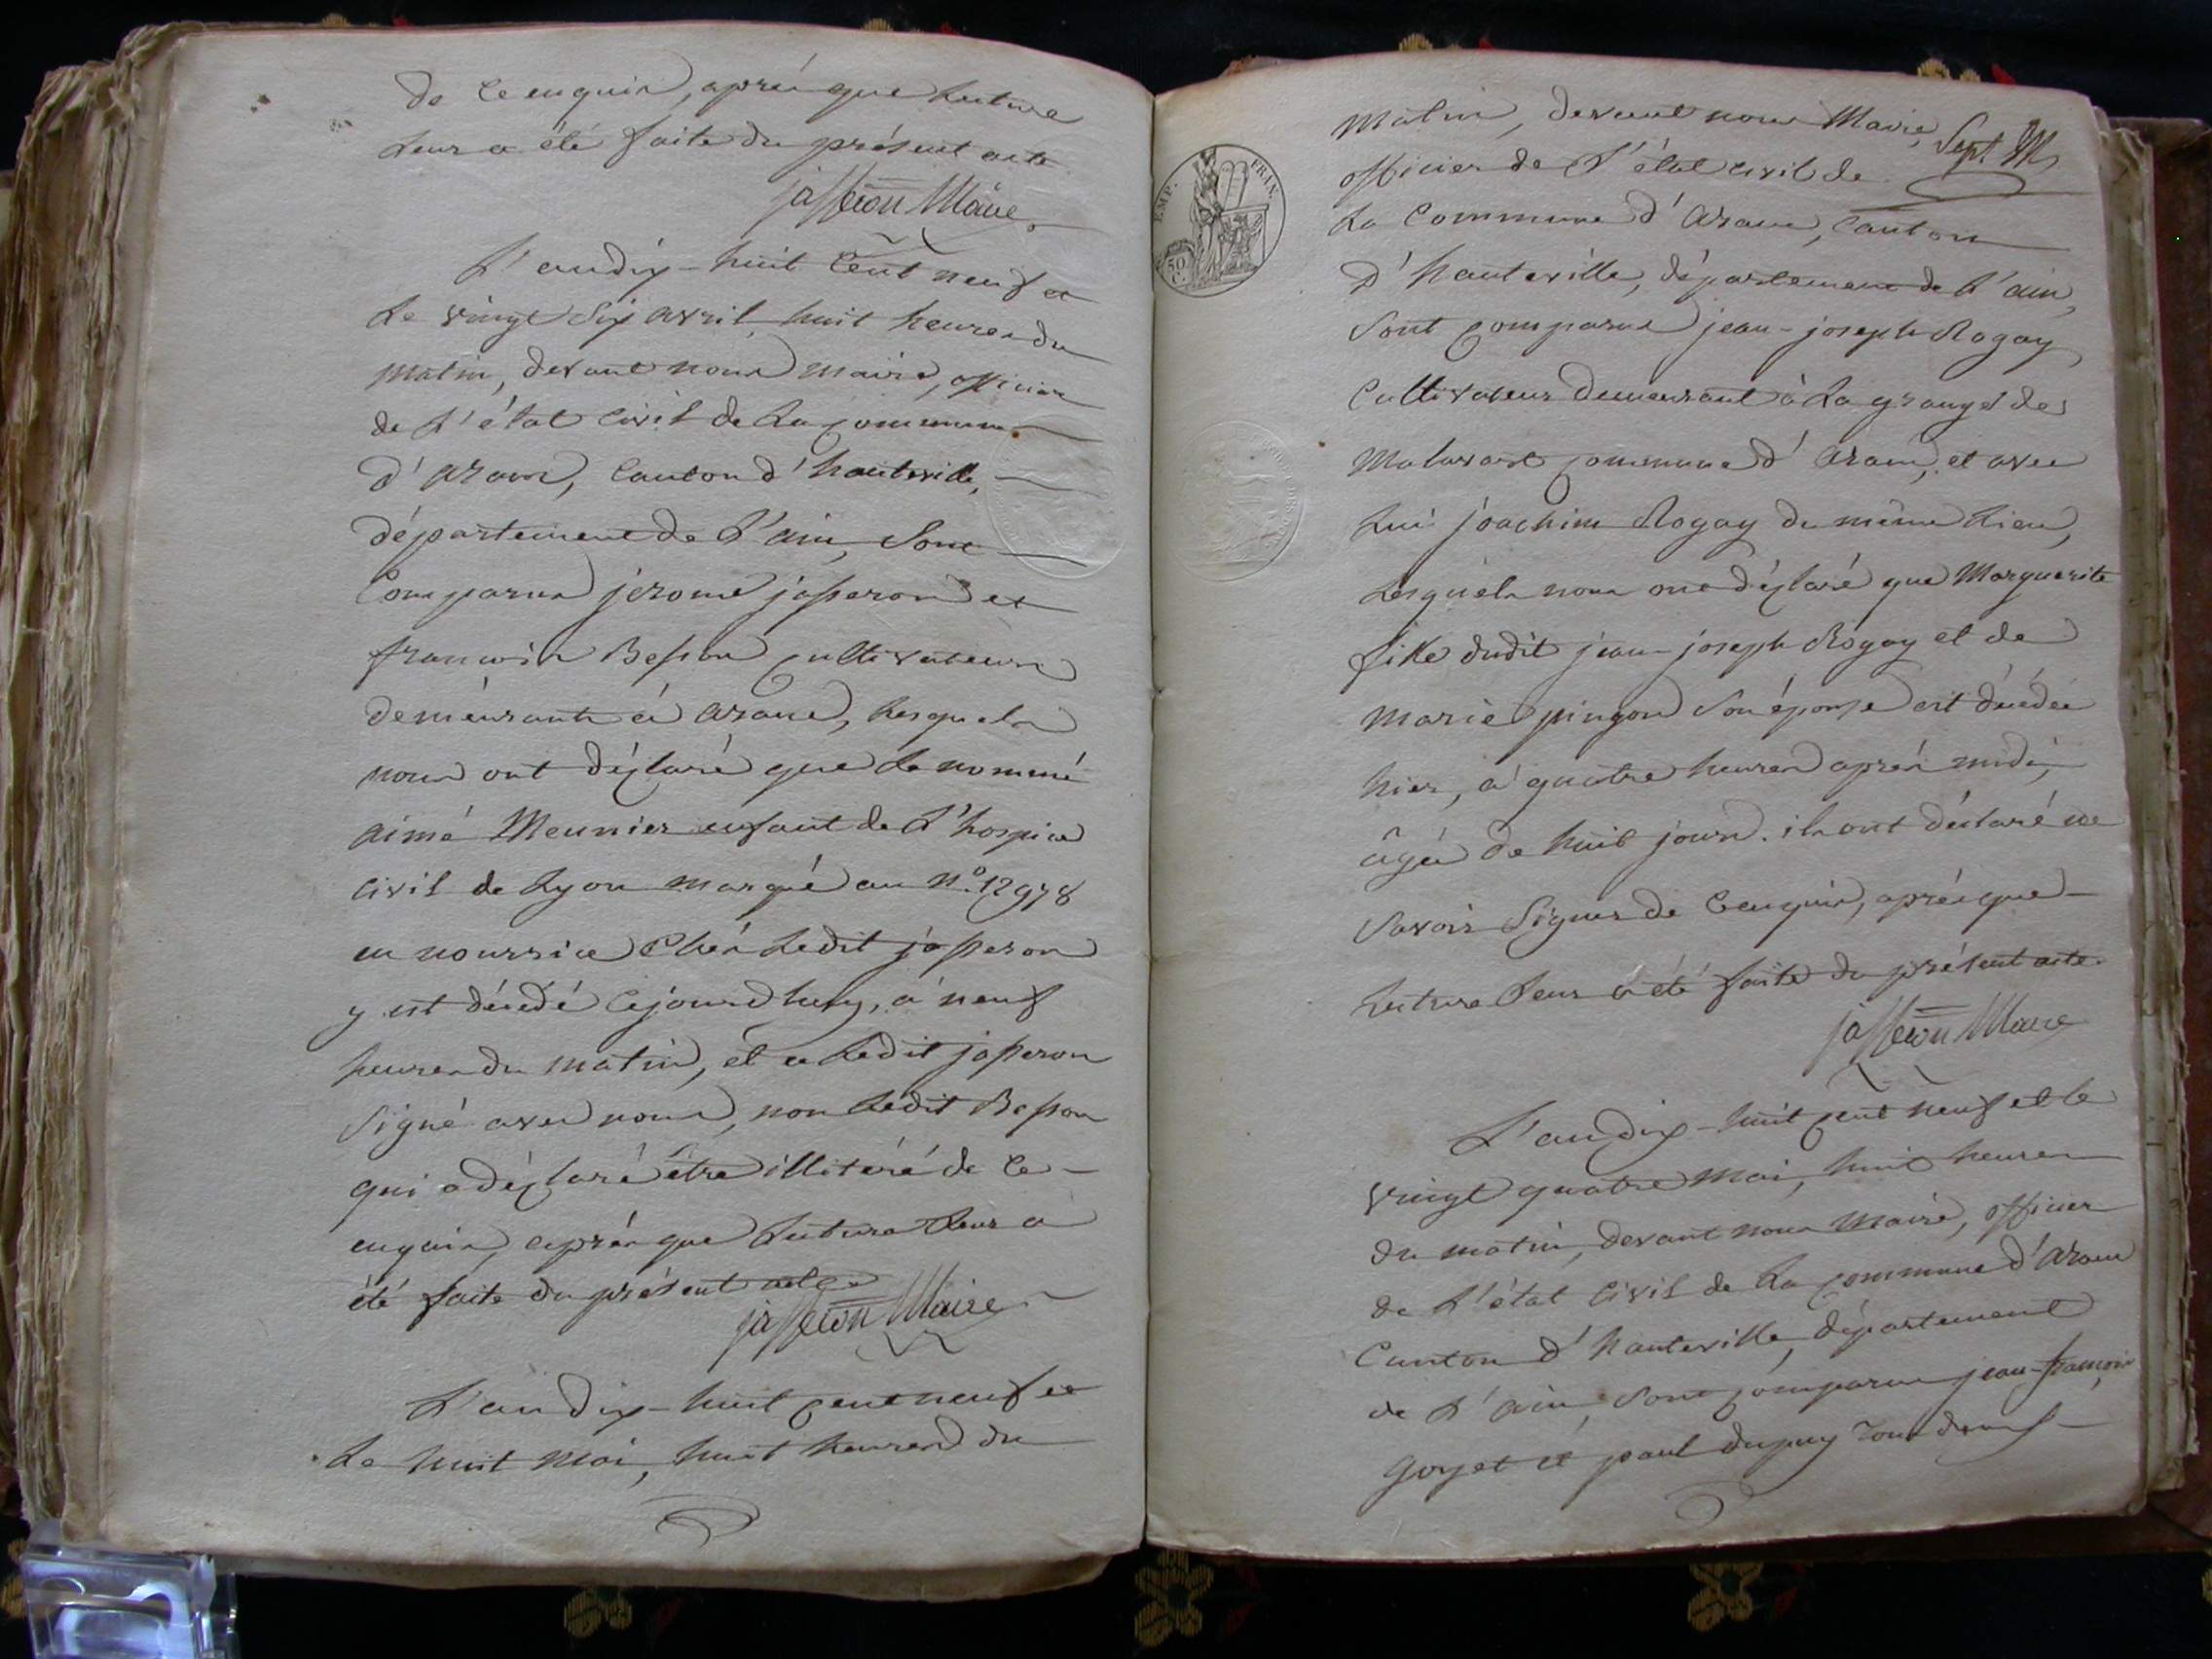 de ce enquis, aprés que lecture
leur a été faite du présent acte
jasseron Maire
L'an dix-huit Cent neuf et
le vingt six avril, huit heures du
matin, devant nous maire, officier
de l'état civil de la commune
d'aranc, Canton d'hauteville,
département de l'ain, sont
Comparus jérome jasseron et
francois Besson cultivateurs
demeurants à aranc, lesquels
nous ont déclaré que le nommé
aimé Meunier enfant de l'hospice
civil de Lyon marqué au nº. 12978
en nourrice Chés ledit jasseron
y est décédé cejourd huy, à neuf
heures du matin, et a ledit jasseron
signé avec nous, non ledit Besson
qui a déclaré être illitéré de ce
enquis, aprés que lecture leur a
été faite du présent acte
jasseron Maire
L'an dix-huit cent neuf et
le huit mai, huit heures du
matin, devant nous Maire, Sept
officier de l'état civil de
la Commune d'aranc, Canton
d'hauteville, département de l'ain,
sont comparus jean-joseph Rogay
Cultivateur demeurant à la grange de
Malaval commune d'aranc, et avec
lui joachim Rogay du même lieu,
lesquels nous ont déclaré que Marguerite
fille dudit jean-joseph Rogay et de
marie pingon son épouse est décédée
hier, à quatre heures aprés midi,
âgée de huit jours. ils ont déclaré ne
savoir signer de ce enquis, aprés que
lecture leur a été faite du présent acte.
jasseron Maire
L'an dix-huit cent neuf et le
vingt quatre mai, huit heures
du matin, devant nous maire, officier
de l'état civil de la commune d'aranc
Canton d'hauteville, département
de l'ain, sont comparus jean-françois
goyet et paul dupuy tous deux
EMP. FRAN.
50 C.